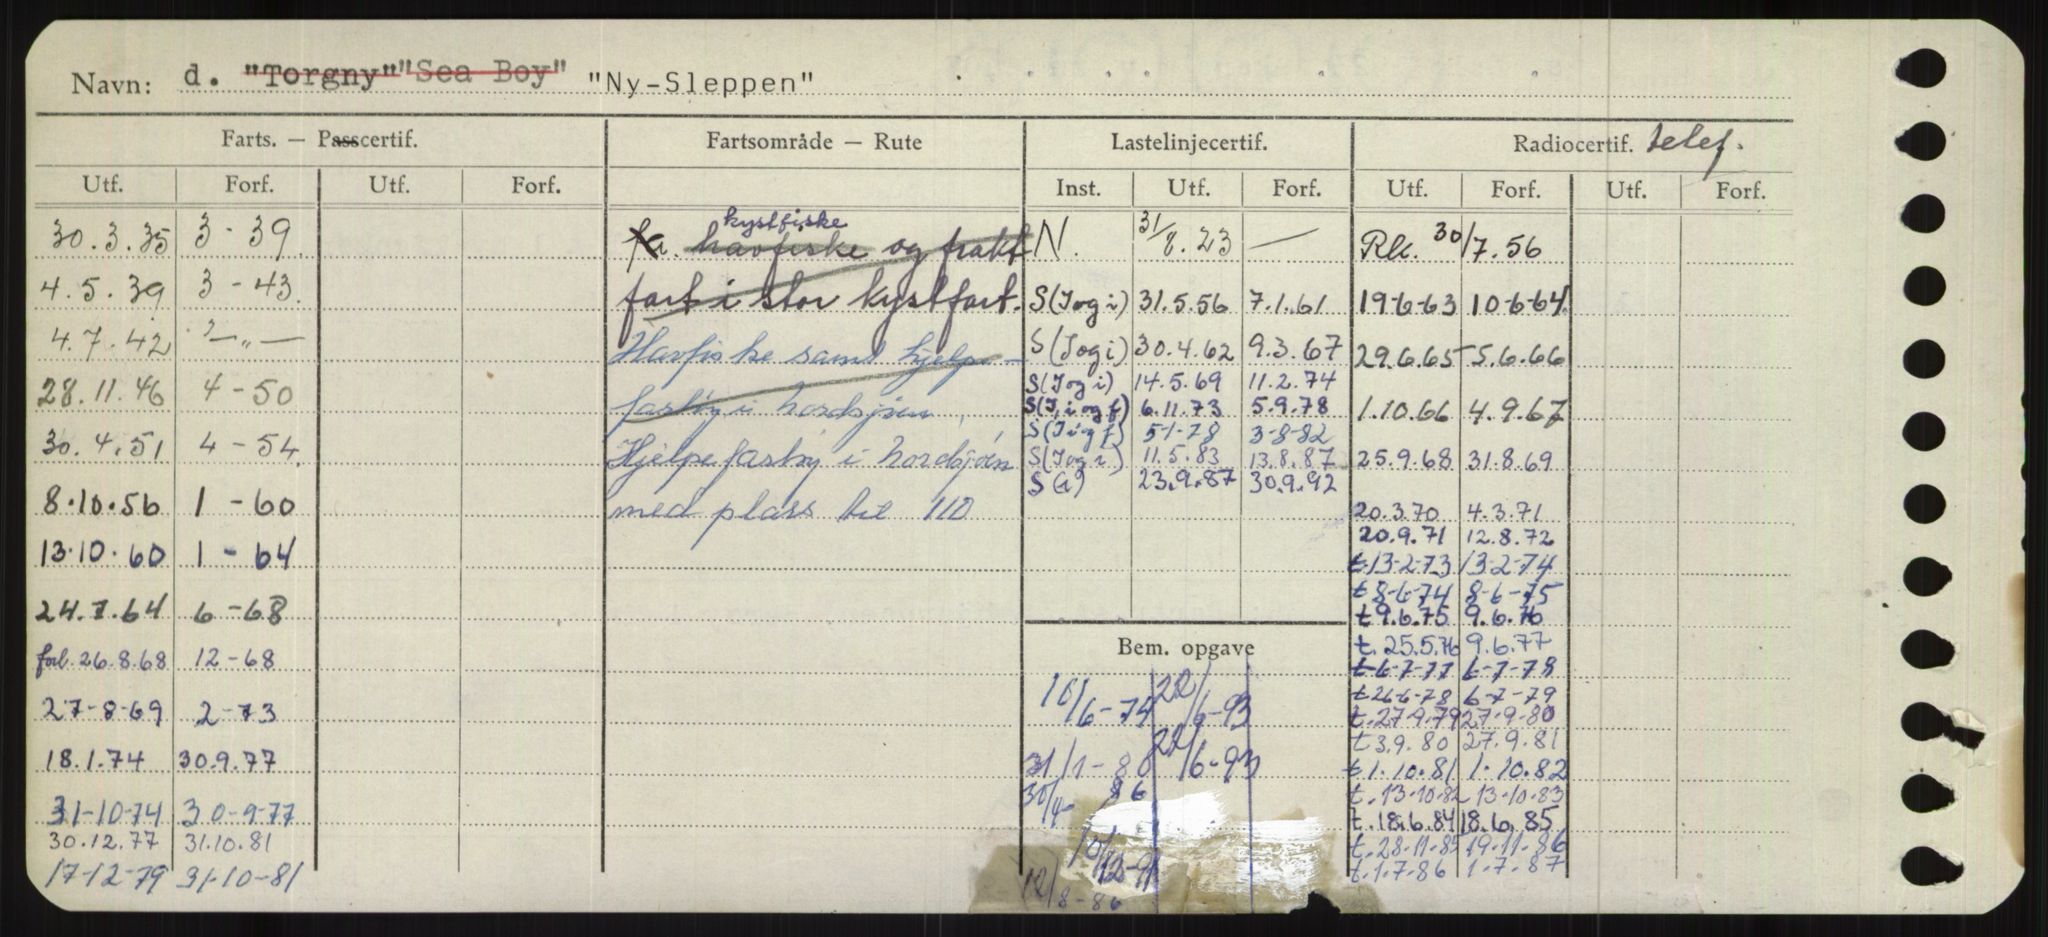 Navn: d. "Torgny" "Sea Boy" "Ny-Sleppen"
Farts. — Passcertif.
Utf. Forf. Utf. Forf.
30.3.35 3-39.
4.5.39 3-43.
4.7.42 —„—
28.11.46 4-50
30.4.51 4-54.
8.10.56 1-60
13.10.60 1-64
24.7.64 6-68
forl. 26.8.68 12-68
27-8-69 2-73
18.1.74 30.9.77
31-10-74 30-9-77
30.12.77 31.10.81
17-12-79 31-10-81
Fartsområde — Rute
kystfiske
havfiske og frakt
fart i stor kystfart.
Havfiske samt hjelpe-
fartøy i nordsjøen.
Hjelpefartøy i nordsjøen
med plass til 110
Lastelinjecertif.
Inst. Utf. Forf.
N. 31/8.23 —
S(I og i) 31.5.56 7.1.61
S(I og i) 30.4.62 9.3.67
S(I og i) 14.5.69 11.2.74
S(I, i og f) 6.11.73 5.9.78
S(I i og f) 5-1-78 3-8-82
S(I og i) 11.5.83 13.8.87
S(i) 23.9.87 30.9.92
Bem. opgave
10/6-74 22/6-93
31/1-80 22/6-93
30/4-86
10/12-91
12/8-86
Radiocertif. telef.
Utf. Forf. Utf. Forf.
Rk. 30/7.56
19-6-63 10-6-64
29.6.65 5.6.66
1.10.66 4.9.67
25.9.68 31.8.69
20.3.70 4.3.71
20.9.71 12.8.72
t.13-2-73 13-2-74
t 8-6-74 8-6-75
t 9.6.75 9.6.76
t. 25.5.76 9.6.77
t 6-7-77 6-7-78
t 26-6-78 6-7-79
t. 27-9.79 27-9-80
t 3.9.80 27.9.81
t 1.10.81 1.10.82
t. 13-10.82 13-10.83
t. 18.6.84 18.6.85
t. 28.11.85 19.11.86
t. 1.7.86 1.7.87